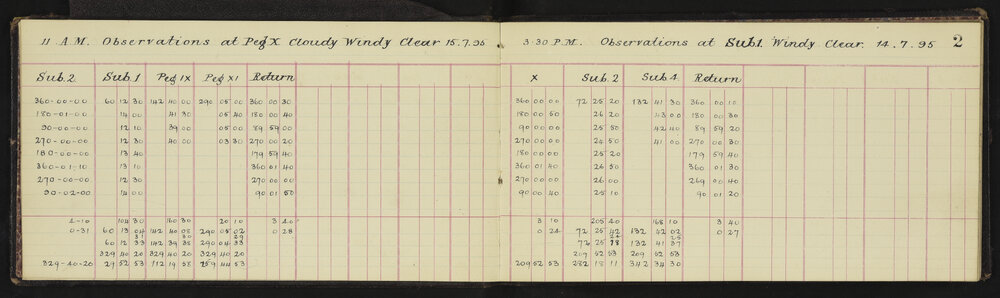 11 A.M. Observations at Peg X Cloudy Windy Clear 15.7.95
Sub.2 Sub.1 Peg IX Peg XI Return
360-00-00 60 12 30 142 40 00 290 05 00 360 00 30
180-01-00 14 00 41 30 05 40 180 00 40
90-00-00 12 10 39 00 05 00 89 59 00
270-00-00 12 30 40 00 03 30 270 00 20
180-00-00 13 40 179 59 40
360-01-10 13 10 360 01 40
270-00-00 12 30 270 00 00
90-02-00 14 00 90 01 50
4-10 104 30 160 30 20 10 3 40
0-31 60 13 04 142 40 08 290 05 02 0 28
31 30 29
60 12 33 142 39 38 290 04 33
329 40 20 329 40 20 329 40 20
329-40-20 29 52 53 112 19 58 259 44 53
3.30 P.M. Observations at Sub.1. Windy Clear. 14.7.95 2
X Sub.2 Sub.4 Return
360 00 00 72 25 20 132 41 30 360 00 10
180 00 50 26 20 43 00 180 00 30
90 00 00 25 50 42 40 89 59 20
270 00 00 24 50 41 00 270 00 30
180 00 00 25 20 179 59 40
360 01 40 26 50 360 01 30
270 00 00 26 00 269 00 40
90 00 40 25 10 90 01 20
3 10 205 40 168 10 3 40
0 24 72 25 42 132 42 02 0 27
25
72 25 18 132 41 37
209 52 53 209 52 53
209 52 53 282 18 11 342 34 30